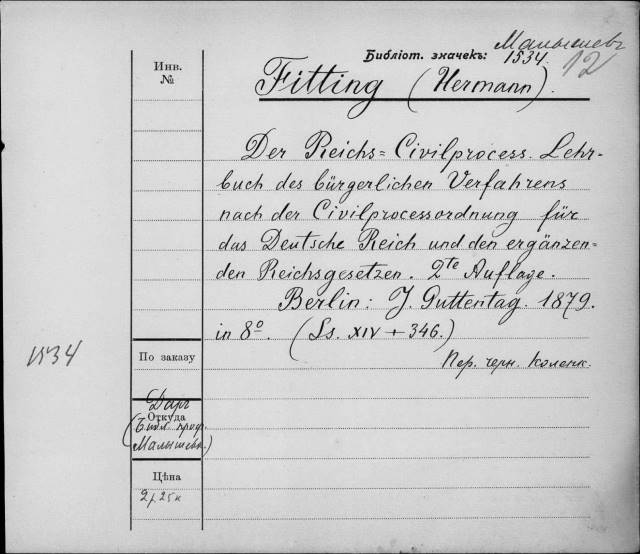 Малышевъ
Библіот. значекъ: 1534.
12
Инв.
№
Fitting (Hermann).
Der Reichs=Civilprocess. Lehr-
buch des bürgerlichen Verfahrens
nach der Civilprocessordnung für
das Deutsche Reich und den ergänzen=
den Reichsgesetzen. 2te Auflage.
Berlin: J. Guttentag. 1879.
in 8º. (Ss. XIV + 346.)
1534
По заказу
Пер. черн. коленк.
Даръ
Откуда
(Библ. проф.
Малышева.)
Цѣна
2 р. 25 к